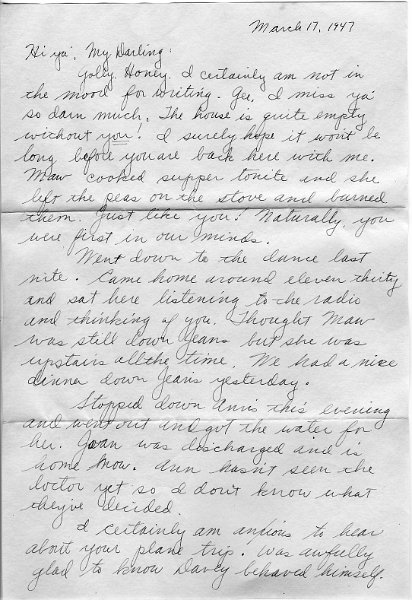 March 17, 1947
Hi ya', My Darling:
Golly, Honey, I certainly am not in
the mood for writing. Gee, I miss ya'
so darn much. The house is quite empty
without you! I surely hope it won't be
long before you are back here with me.
Maw cooked supper tonite and she
left the peas on the stove and burned
them. Just like you! Naturally, you
were first in our minds.
Went down to the dance last
nite. Came home around eleven thirty
and sat here listening to the radio
and thinking of you. Thought Maw
was still down Jeans but she was
upstairs all the time. We had a nice
dinner down Jeans yesterday.
Stopped down Ann's this evening
and went out and got the water for
her. Joan was discharged and is
home now. Ann hasn't seen the
doctor yet so I don't know what
they've decided.
I certainly am anxious to hear
about your plane trip. Was awfully
glad to know Davey behaved himself.